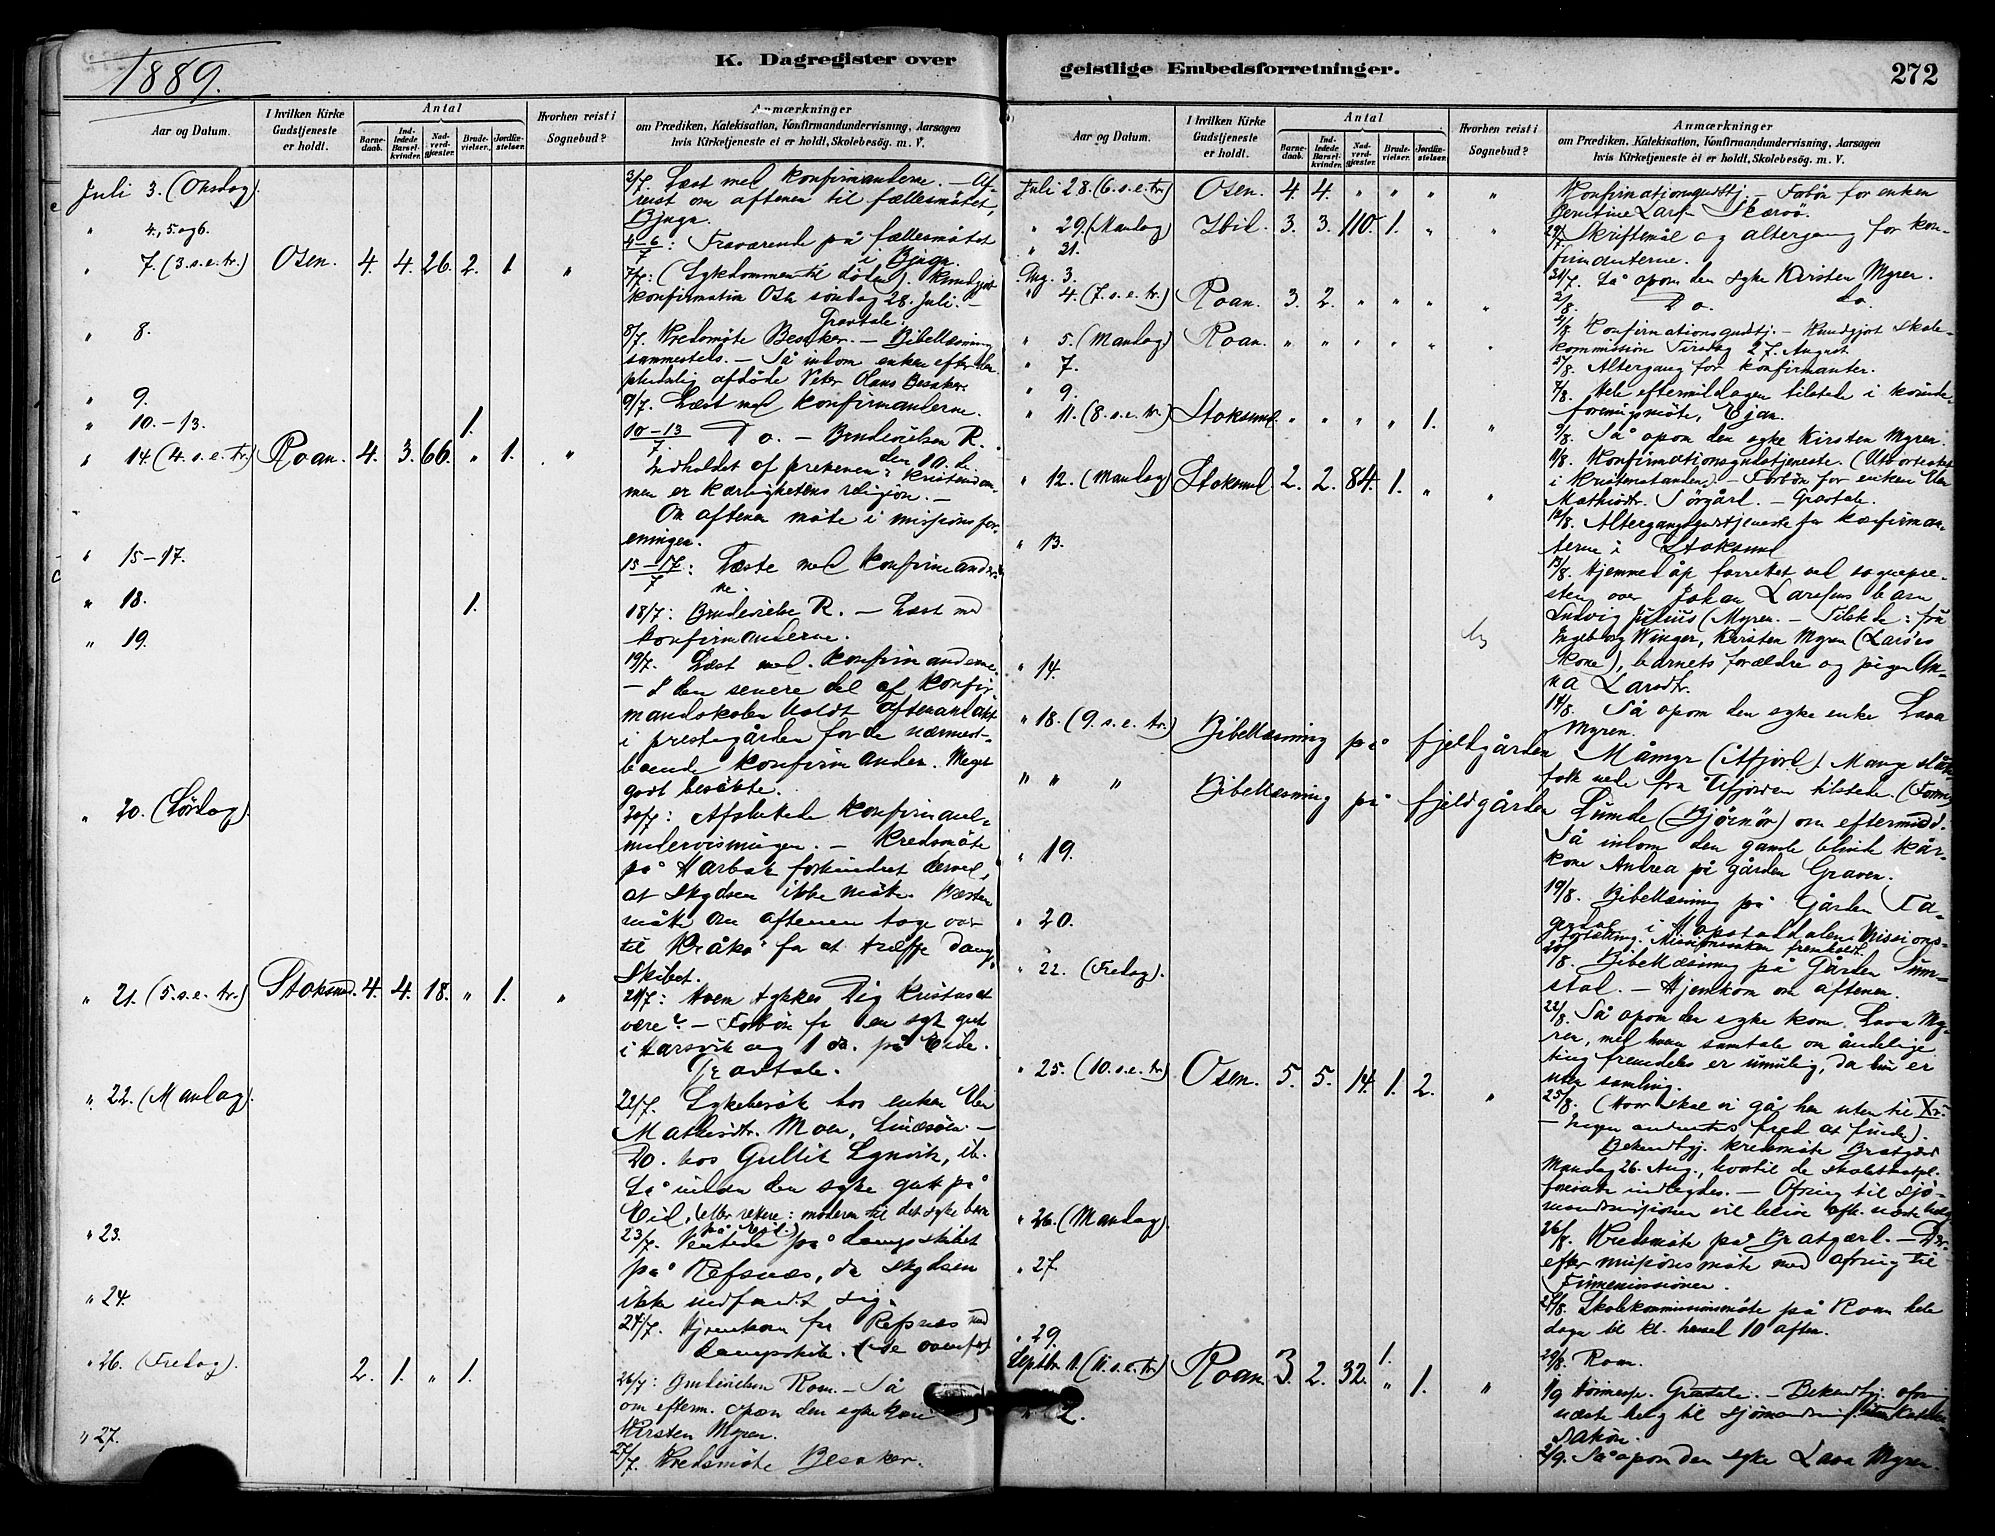 1889.
K. Dagregister over
Aar og Datum.
I hvilken Kirke Gudstjeneste er holdt.
Antal
Barnedaab.
Indledede Barselkvinder.
Nadverdgjæster.
Brudevielser.
Jordfæstelser.
Hvorhen reist i Sognebud?
Anmærkninger
om Prædiken, Katekisation, Konfirmandundervisning, Aarsagen
hvis Kirketjeneste ei er holdt, Skolebesøg. m. V.
Juli 3. (Onsdag).
3/7. Læst med konfirmanderne. — Af-
reist om aftenen til fællesmøtet,
Bjugn.
" 4, 5 og 6.
4–6/7: Fraværende på fællesmøtet
i Bjugn.
" 7. (3. s. e. tr.) Osen. 4. 4. 26. 2. 1. "
7/7: (Sykdommen til døden). Kundgjort
konfirmation Osen søndag 28. Juli. —
Gravtale.
" 8.
8/7. Kredsmøte Besaker. — Bibellæsning
sammesteds. — Så indom enken efter den
pludselig afdøde Peter Hans Besaker.
" 9.
9/7. Læst med konfirmanderne.
" 10.–13. 1.
10–13/7. Do. — Brudevielsen R.
den 10. de.
" 14. (4. s. e. tr.) Roan. 4. 3. 66. " 1. "
Indholdet af prekenen: kristendom-
men er kærlighetens religion. —
Om aftenen møte i missionsfor-
eningen.
" 15–17.
15–17/7: Læste med konfirmander-
ne.
" 18. 1.
18/7: Brudevielse R. — Læst med
konfirmanderne.
" 19.
19/7. Læst med konfirmanderne.
— I den senere del af konfir-
mandskolen holdt aftenandakt
i prestegården for de nærmest-
boende konfirmander. Meget
godt besøkte.
" 20. (Lørdag).
20/7: Afsluttede konfirmand-
undervisningen. — Kredsmøte
på Harbak forhindret derved,
at skydsen ikke møtte. Presten
måtte om aftenen tage over
til Kråkø for at træffe damp-
skibet.
" 21. (5. s. e. tr.) Stoksund. 4. 4. 18. " 1. "
21/7: Hvem tykkes Dig Kristus at
være? — Forbøn for en syk gut
i Harsvik og 1 do. på Eide.
Gravtale.
" 22. (Mandag).
22/7. Sykebesøk hos enken Elen
Mathisdtr. Moen, Linesøen. —
Do. hos Gullik Lynvik, ib.
Så indom den syke gut på
Eid, (eller rettere: moderen til det syke barn
på Eid.)
" 23.
23/7. Ventede på dampskibet
på Refsnes, da skydsen
ikke indfandt sig.
" 24.
24/7. Hjemkom fra Refsnes med
dampskib. (se ovenfor)
" 26. (Fredag). 2. 1. " 1.
26/7: Brudevielsen Roan. — Så
om efterm. opom den syke kone
Kirsten Myren.
" 27.
27/7. Kredsmøte Besaker.
geistlige Embedsforretninger.
272
Aar og Datum.
I hvilken Kirke Gudstjeneste er holdt.
Antal
Barnedaab.
Indledede Barselkvinder.
Nadverdgjæster.
Brudevielser.
Jordfæstelser.
Hvorhen reist i Sognebud?
Anmærkninger
om Prædiken, Katekisation, Konfirmandundervisning, Aarsagen
hvis Kirketjeneste ei er holdt, Skolebesøg. m. V.
Juli 28. (6. s. e. tr.) Osen. 4. 4. " " " "
Konfirmationsgudstj. — Forbøn for enken
Skærvø.
" 29. (Mandag) Ibid. 3. 3. 110. 1. " "
29/7 Skriftemål og altergang for kon-
firmanterne.
" 31.
31/7. Så opom den syke Kirsten Myren.
Aug. 3.
2/8. Do. do.
" 4. (7. s. e. tr.) Roan. 3. 2. " " " "
4/8 Konfirmationsgudstj. — Kundgjort skole-
kommission Tirsdag 27. August.
" 5. (Mandag) Roan. " " " " " "
5/8. Altergang for konfirmanter.
" 7.
7/8. Hele eftermiddagen tilstede i kvinde-
foreningsmøte,
" 9.
9/8. Så opom den syke Kirsten Myren.
" 11. (8. s. e. tr.) Stoksund. " " " " 1. "
11/8. Konfirmationsgudstjeneste. (
i Kristenstanden). — Forbøn for enken Elen
Mathisdtr. Sørgård. — Gravtale.
" 12. (Mandag) Stoksund 2. 2. 84. 1. " "
12/8. Altergangsgudstjeneste for konfirman-
terne i Stoksund
" 13.
13/8. Hjemmedåp forrettet ved sognepre-
sten over Johan Larsens barn
Ludvig Julius (Myren. — Tilstede: fru
Ingeborg Winger, Kirsten Myren (Larses
kone), barnets forældre og pigen An-
na Larsdtr.
" 14.
14/8. Så opom den syke enke Lava
Myren.
" 18. (9. s. e. tr.) Bibellæsning på fjeldgården Måmyr (Åfjord). Mange
folk ned fra Åfjorden tilstede. (Form.)
" " " Bibellæsning på fjeldgården Sumde (Bjørnør) om eftermidd.
Så indom den gamle blinde kår-
kone Andrea på gården Graven.
" 19.
19/8. Bibellæsning på Gården
i Hopstaddalen. Missions-
fortælling. Missionssaken fremholdt.
" 20.
20/8. Bibellæsning på Gården Sum-
stad. — Hjemkom om aftenen.
" 22. (Fredag).
22/8. Så opom den syke kone Lava My-
ren, med hvem samtale om åndelige
ting fremdeles er umulig, da hun er
uten samling.
" 25. (10. s. e. tr.) Osen. 5. 5. 14. 1. 2. "
25/8. (Hvor skal vi gå hen uten til Xs:
— Ingen andensteds fred at finde).
Bekendtgj. kredsmøte Bratgærd
Mandag 26. Aug., hvortil de
indlegdes. — Ofring til sjø-
mandsmissionen vil blive næste helg.
" 26. (Mandag).
26/8. Kredsmøte på Bratgærd. — Der-
efter missionsmøte med ofring til
Finnemissionen.
" 27.
27/8. Skolekommissionsmøte på Roan hele
dagen til kl. henved 10 aften.
" 29. 1.
29/8. Roan.
Septbr. 1. (11. s. e. tr.) Roan. 3. 2. 32. " 1. "
1/9 Gravtale. — Bekendtgj. ofring
næste helg til sjømandsmissionen
" 2.
2/9. Så opom den syke Lava Myren.